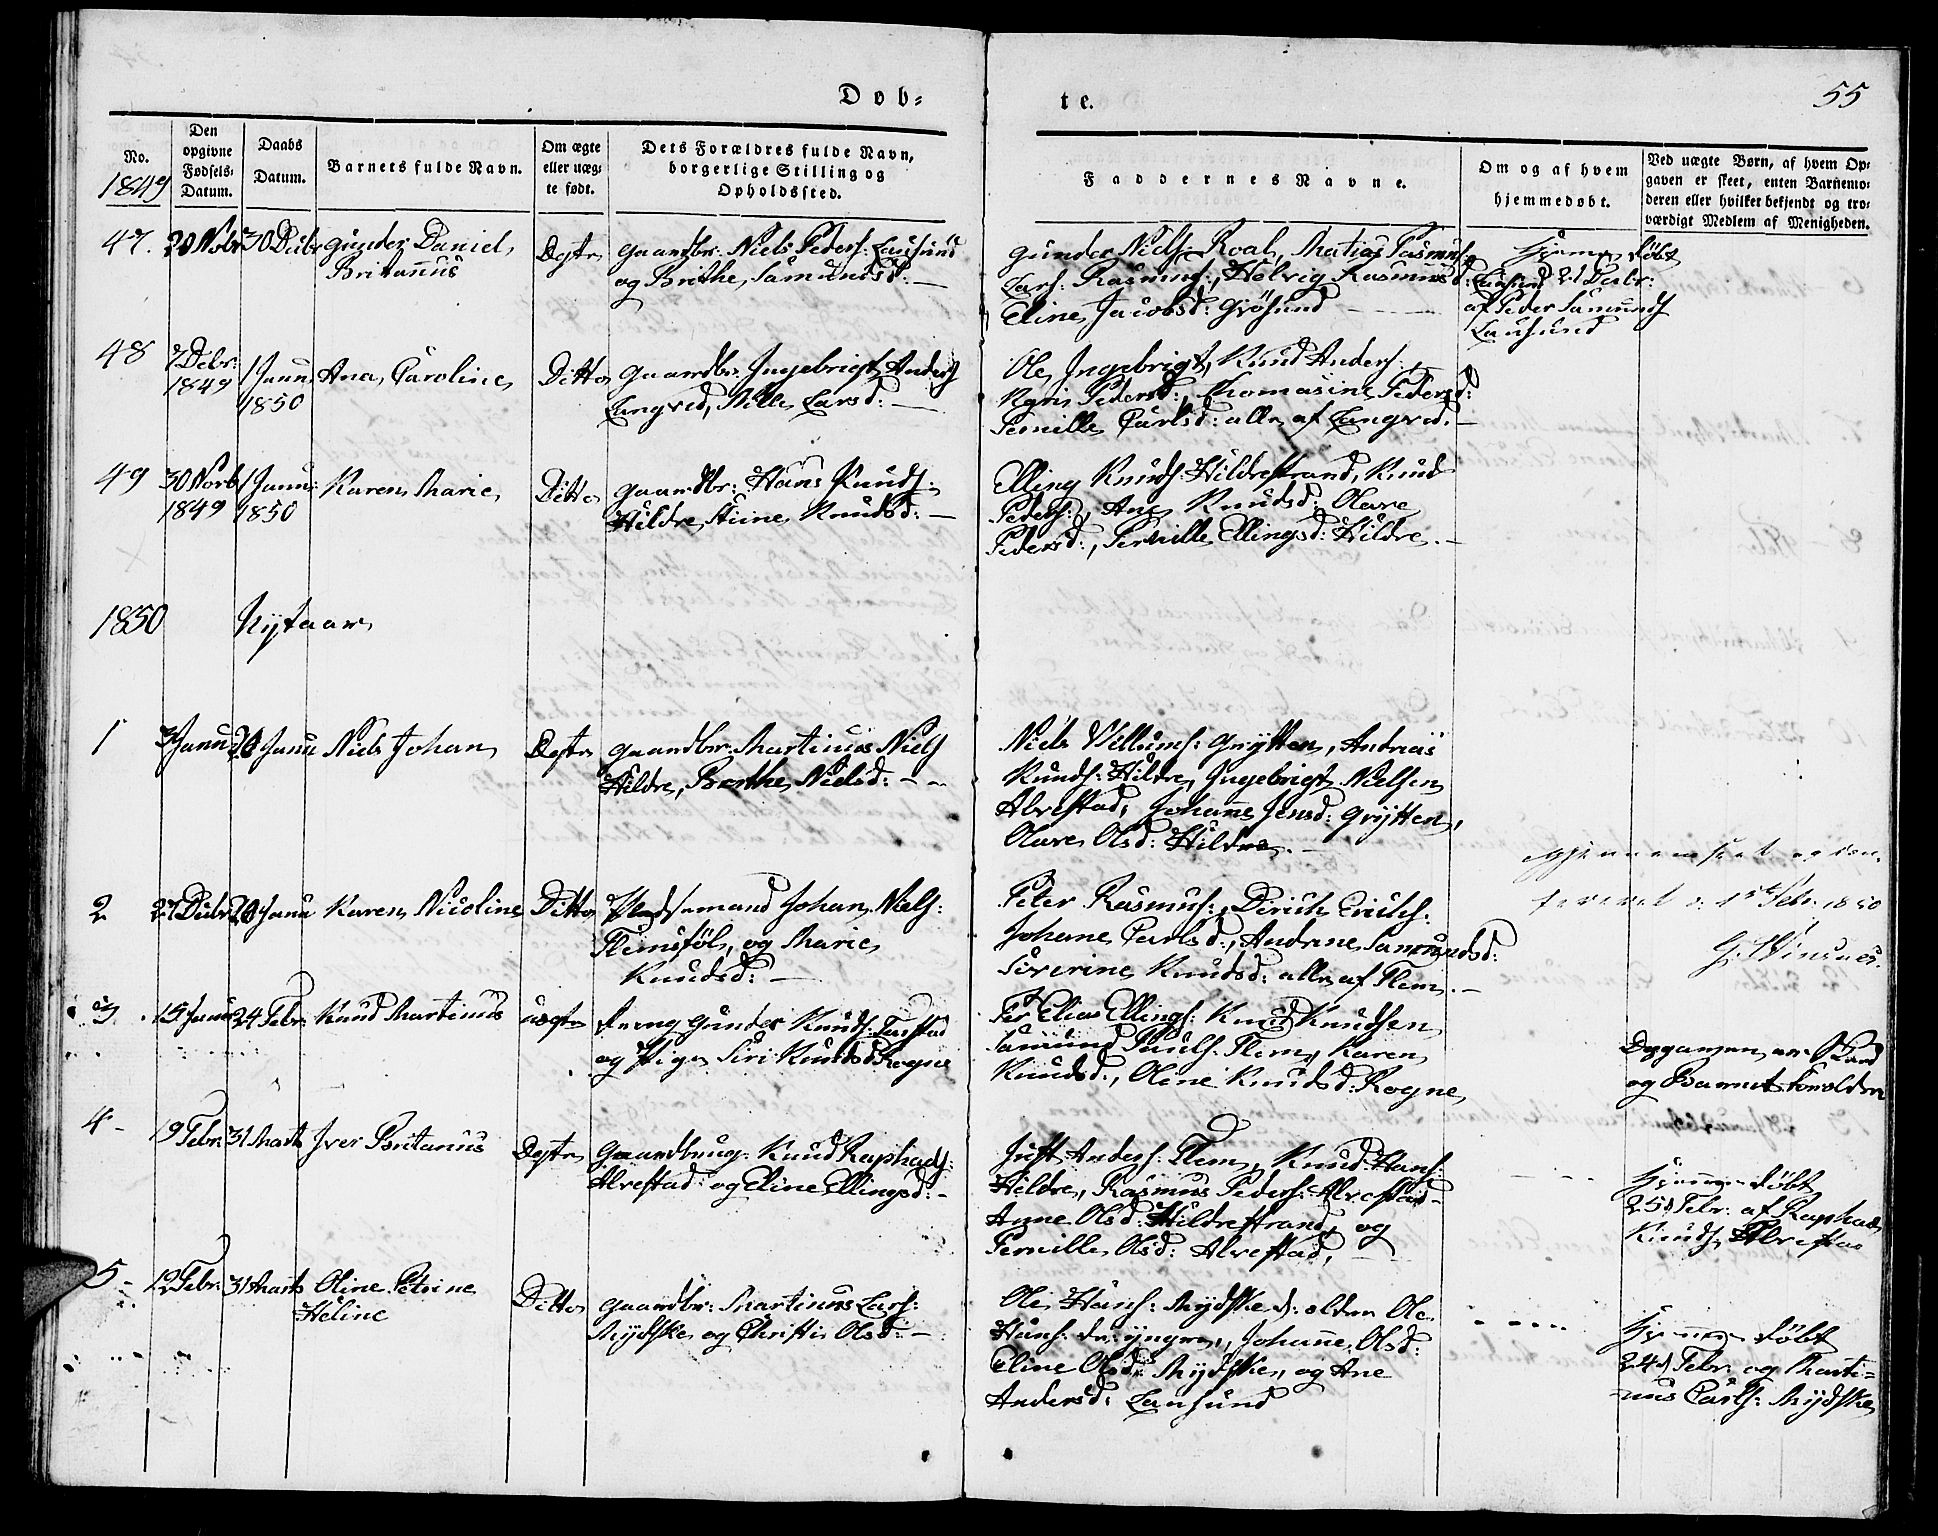 Døb-
te.
55
No.
1849
Den
opgivne
Fødsels-
Datum.
Daabs
Datum.
Barnets fulde Navn.
Om ægte
eller uæg-
te født.
Dets Forældres fulde Navn,
borgerlige Stilling og
Opholdssted.
Faddernes Navne.
Om og af hvem
hjemmedøbt.
Ved uægte Børn, af hvem Op-
gaven er skeet, enten Barnemo-
deren eller hvilket bekjendt og tro-
værdigt Medlem af Menigheden.
47. 20 Novbr 30 Decbr Gunder Daniel
Britanus
Ægte
Gaardbr: Niels Peders: Lausund
og Brithe Samundsd: —
Gunder Niels: Roal, Matias Rasmus:
Lars: Rasmus:, Helvig Rasmusd:
Eline Jacobsd: Grøsund
Hjemme døbt
Lausund 21 Decbr:
af Peder Samunds
Lausund
48
7 Decbr:
1849
1 Janu
1850
Ana Caroline
Ditto
Gaardbr: Ingebrigt Anders
Longved, Nille Larsd: —
Ole Ingebrigt, Knud Anders:,
Pedersd:, Thomasine Pedersd:
Pernille Carlsd: alle af Longved. —
49
30 Novb
1849
1 Janu:
1850
Karen Marie
Ditto
Gaardbr: Hans Knuds:
Hildre, Stine Knudsd: —
Elling Knuds: Hildrestrand, Knud
Peders:, Ane Knudsd: Olave
Pedersd:, Pernille Ellingsd: Hildre. —
1850 Nytaar
1 3 Janu 20 Janu Niels Johan Ægte
Gaardbr: Martinus Niels
Hildre, Berthe Nielsd: —
Niels Villums: Grytten, Andreas
Knuds: Hildre, Ingebrigt Nielsen
Alvestad, Johanne Jensd: Grytten,
Olave Olsd: Hildre. —
2 27 Decbr 20 Janu Karen Nicoline Ditto
Pladsemand Johan Niels:
Flems og Marie
Knudsd: —
Peter Rasmus:, Dirich Erichs:
Johane Carlsd:, Andrine Samundsd:
Severine Knudsd: alle af Flem. —
Gjennemseet og con-
fereret d: 15 Febr: 1850
3. 15 Janu 24 Febr: Knud Martinus uægte
Dreng Gunder Knuds:
og Pige Siri Knudsd: Rogne
Per Elias Ellings: Knud Knudsen
Samund Pauls: Flem, Karen
Knudsd:, Oline Knudsd: Rogne
Opgaven er
og Barnets Forældre
4 - 19 Febr: 31 Marts Iver Britanus Ægte
Gaardbrug: Knud Raphaels:
Alvestad og Eline Ellingsd: —
Just Anders: Flem, Knud Hans:
Hildre, Rasmus Peders: Alvestad
Anne Olsd: Hildrestrand, og
Pernille Olsd: Alvestad, —
Hjemme døbt
25d Febr: af Raphael
Knuds: Alvestad
5 - 12 Febr: 31 Marts Oline Petrine
Heline
Ditto
Gaardbr: Martinus Lars:
Mydske og Christi Olsd: —
Ole Hans: Mydske d: eldre Ole
Hans: d: yngre, Johanne Olsd:
Eline Olsd: Mydske, og Ane
Andersd: Lausund
Hjemme døbt
24d Febr: og Marti-
nus Carls: Mydske